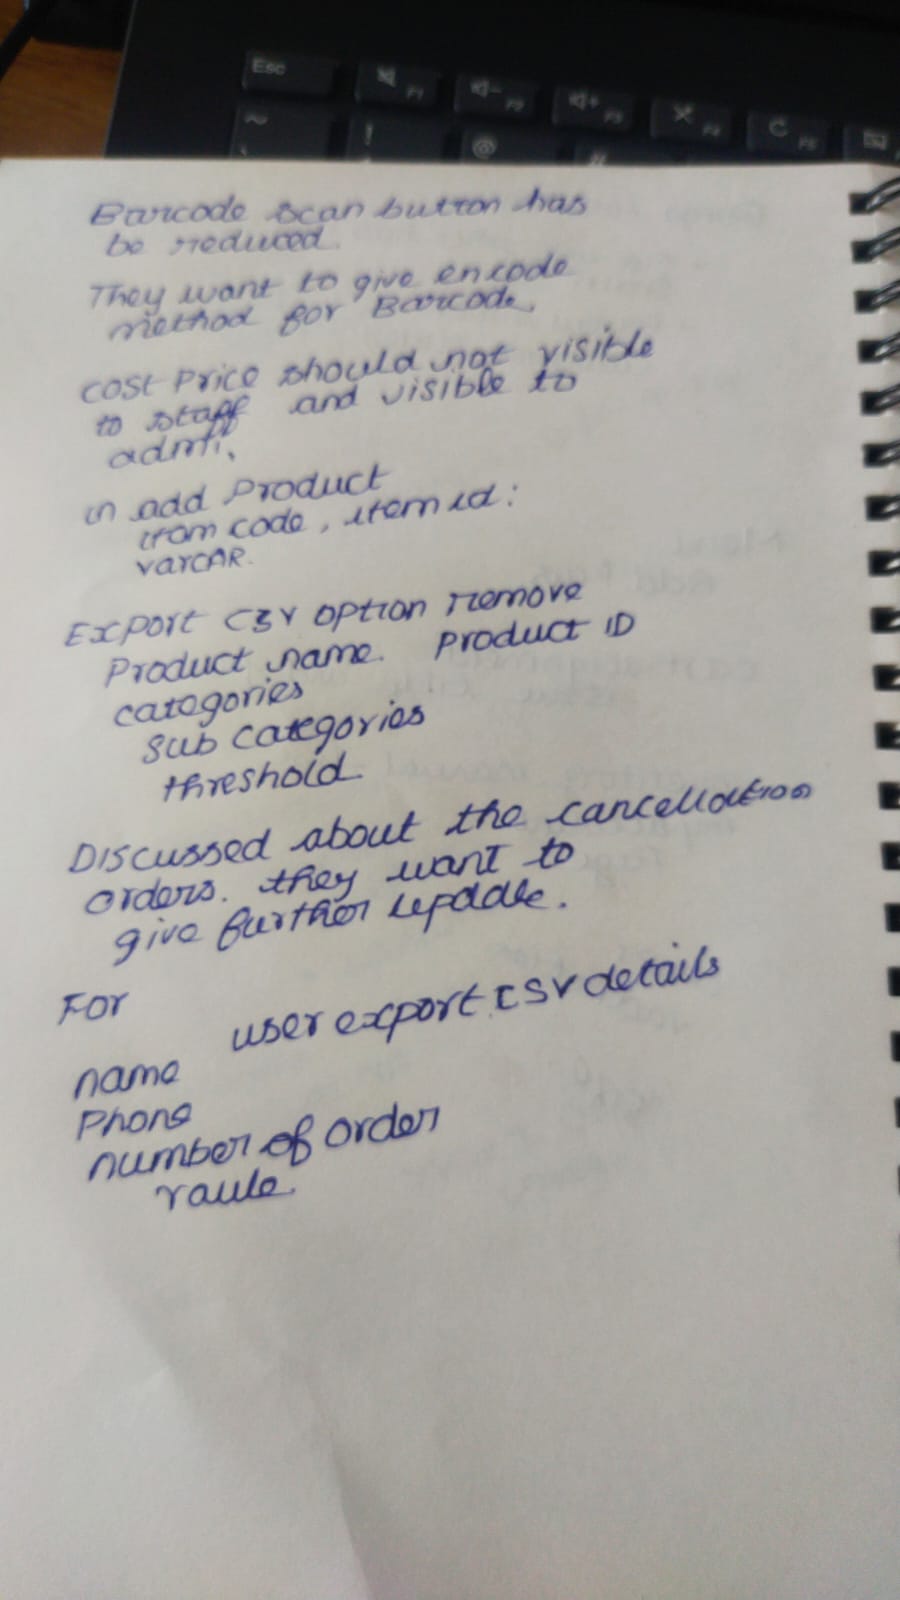 Esc
F1
F2
F3
F4
F5
~
!
@
#
Barcode scan button has
be reduced.
They want to give encode
method for Barcode.
cost Price should not visible
to staff and visible to
in add Product
item code, item id:
Export CSV option remove
Product name. Product ID
categories
sub categories
threshold
Discussed about the cancellation
orders. they want to
give further update.
For
user export CSV details
name
Phone
number of order